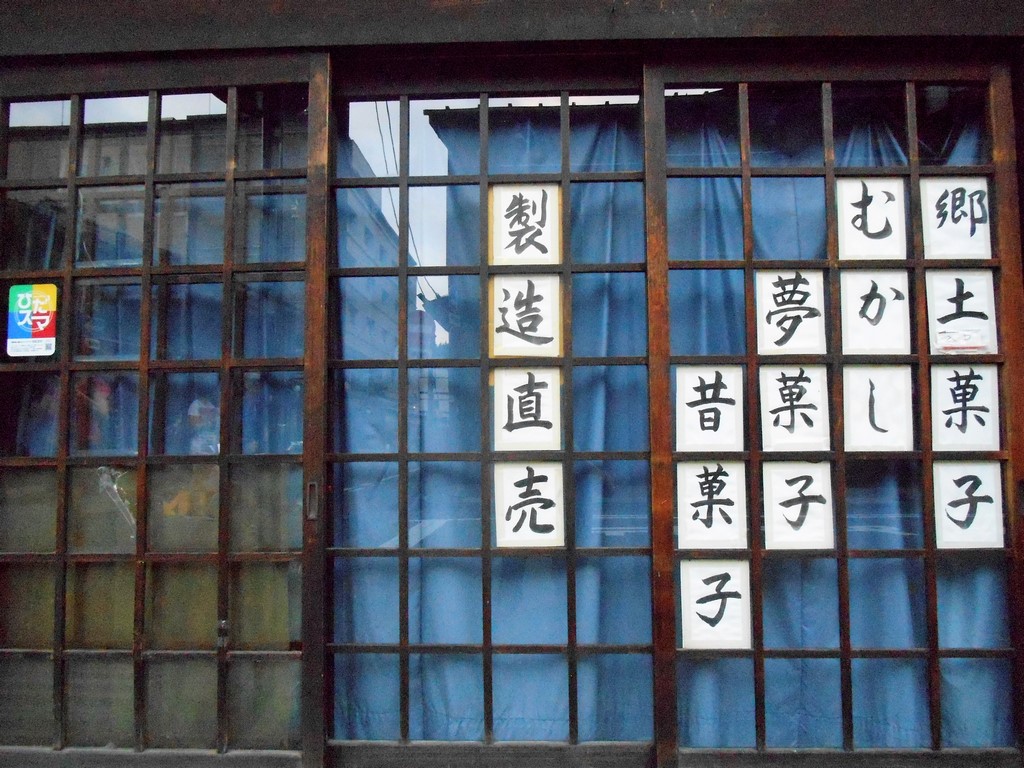 郷土菓子
むかし
夢菓子
昔菓子
製造直売
ぴた
スマ